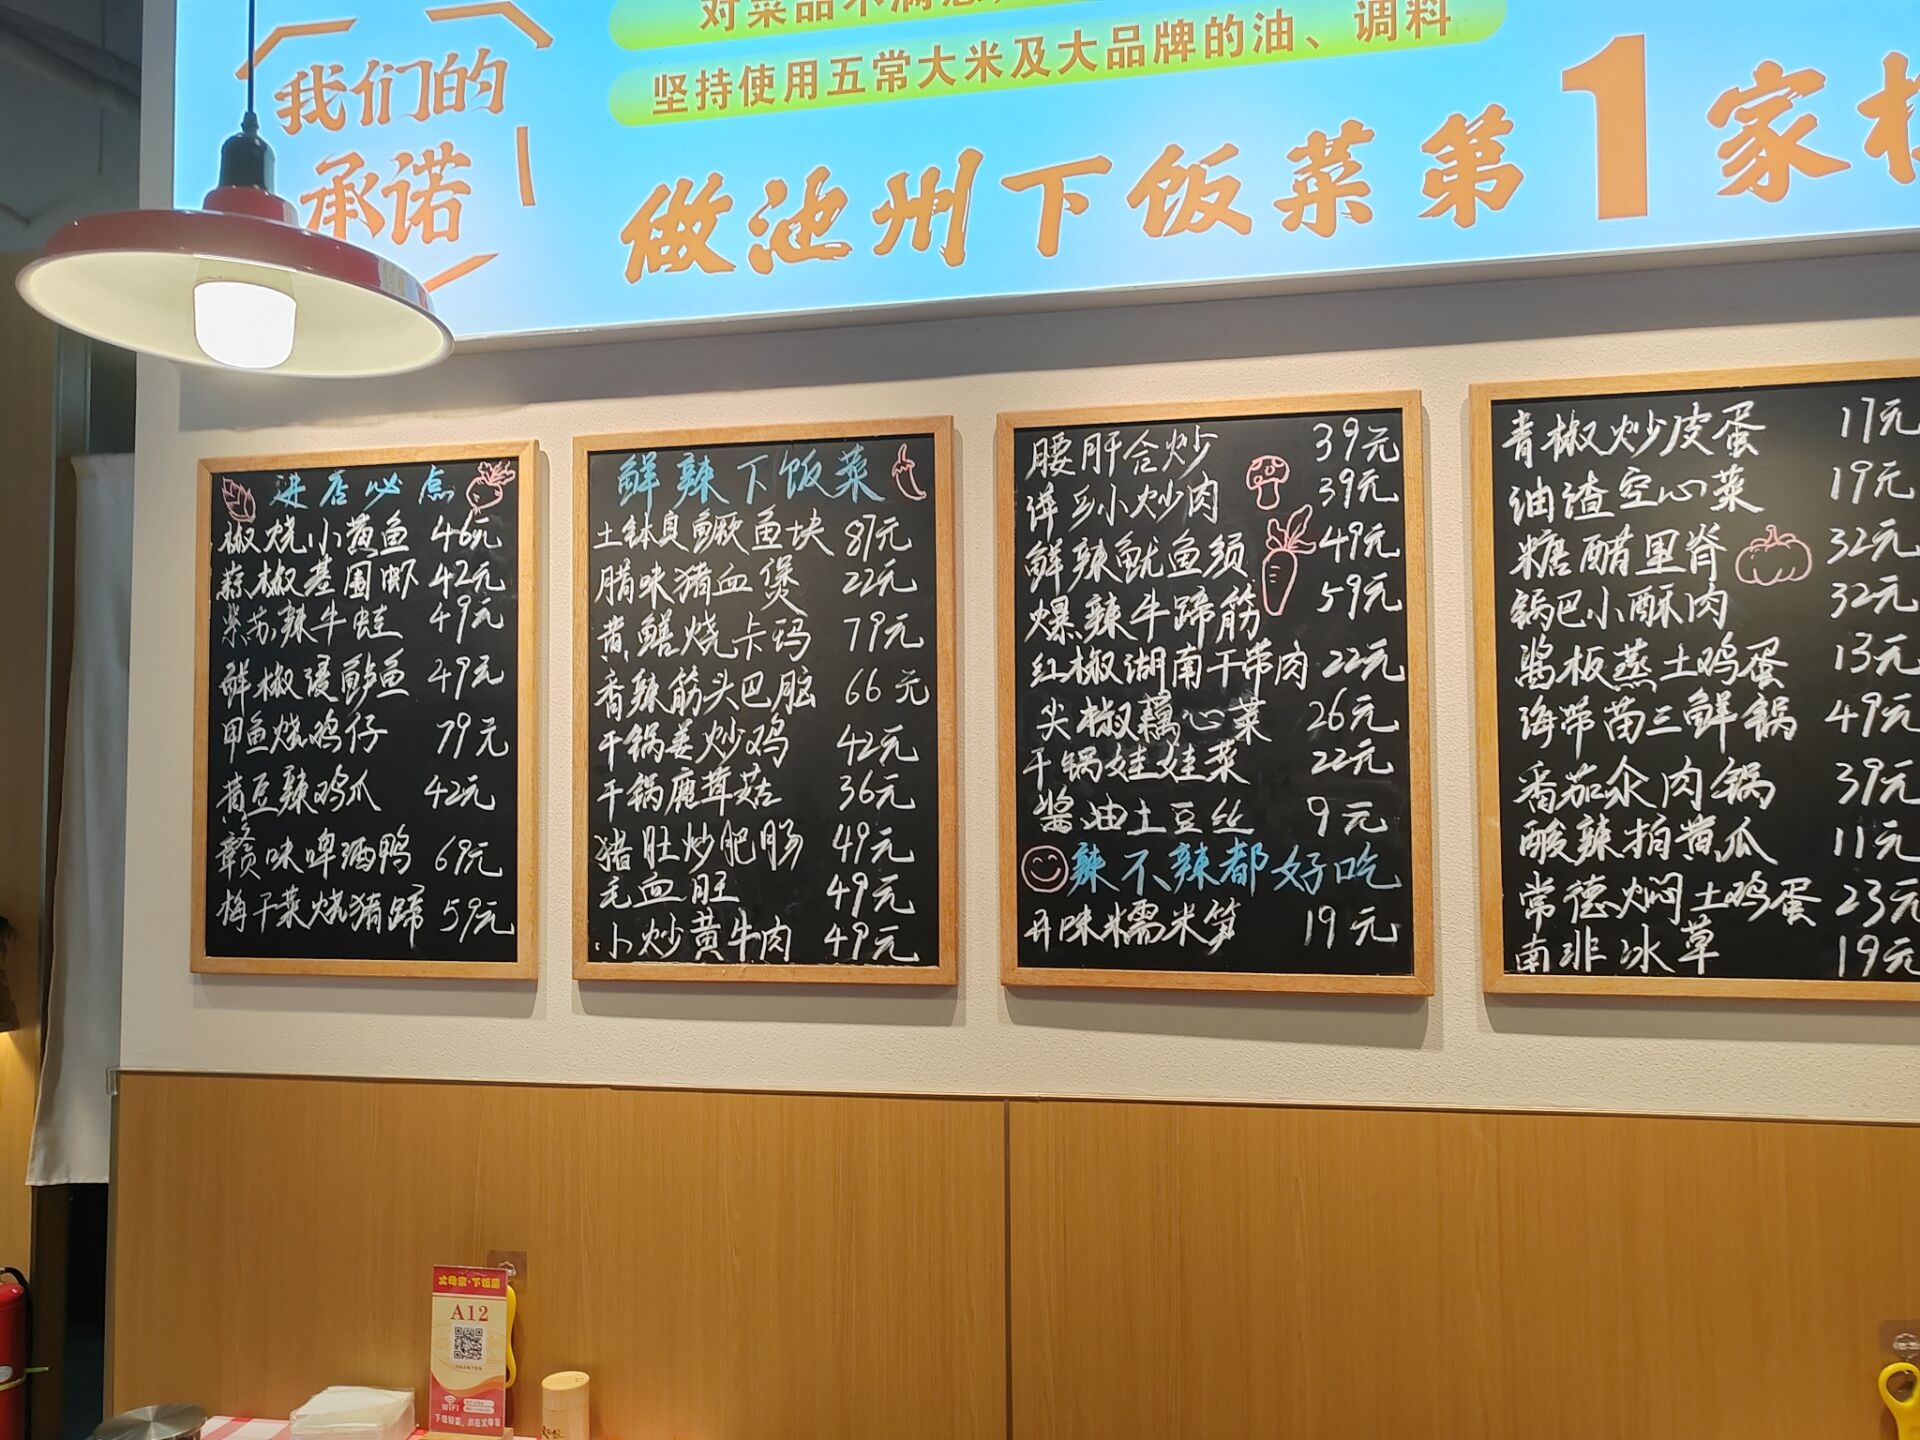 我们的
承诺
对菜品不满意
坚持使用五常大米及大品牌的油、调料
做池州下饭菜第1家
进店必点
椒烧小黄鱼 46元
蒜椒基围虾 42元
紫苏辣牛蛙 49元
鲜椒浸鲈鱼 49元
甲鱼烧鸡仔 79元
黄豆辣鸡爪 42元
赣味啤酒鸭 69元
梅干菜烧猪蹄 59元
鲜辣下饭菜
土钵臭鳜鱼块 87元
腊味猪血煲 22元
黄鳝烧卡玛 79元
香辣筋头巴脑 66元
干锅姜炒鸡 42元
干锅鹿茸菇 36元
猪肚炒肥肠 49元
毛血旺 49元
小炒黄牛肉 49元
腰肝合炒 39元
萍乡小炒肉 39元
鲜辣鱿鱼须 49元
爆辣牛蹄筋 59元
红椒湖南干带肉 22元
尖椒藕心菜 26元
干锅娃娃菜 22元
酱油土豆丝 9元
辣不辣都好吃
开味糯米笋 19元
青椒炒皮蛋 17元
油渣空心菜 19元
糖醋里脊 32元
锅巴小酥肉 32元
酱板蒸土鸡蛋 13元
海带苗三鲜锅 49元
番茄汆肉锅 39元
酸辣拍黄瓜 11元
常德焖土鸡蛋 23元
南非冰草 19元
丈母家·下饭菜
A12
WiFi